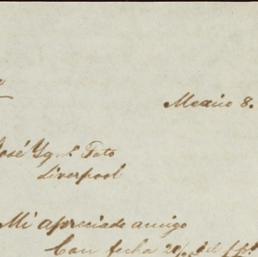 Mexico 8.
José Yg. Toto
Liverpool
Mi apreciado amigo
Con fecha 20 del pp.